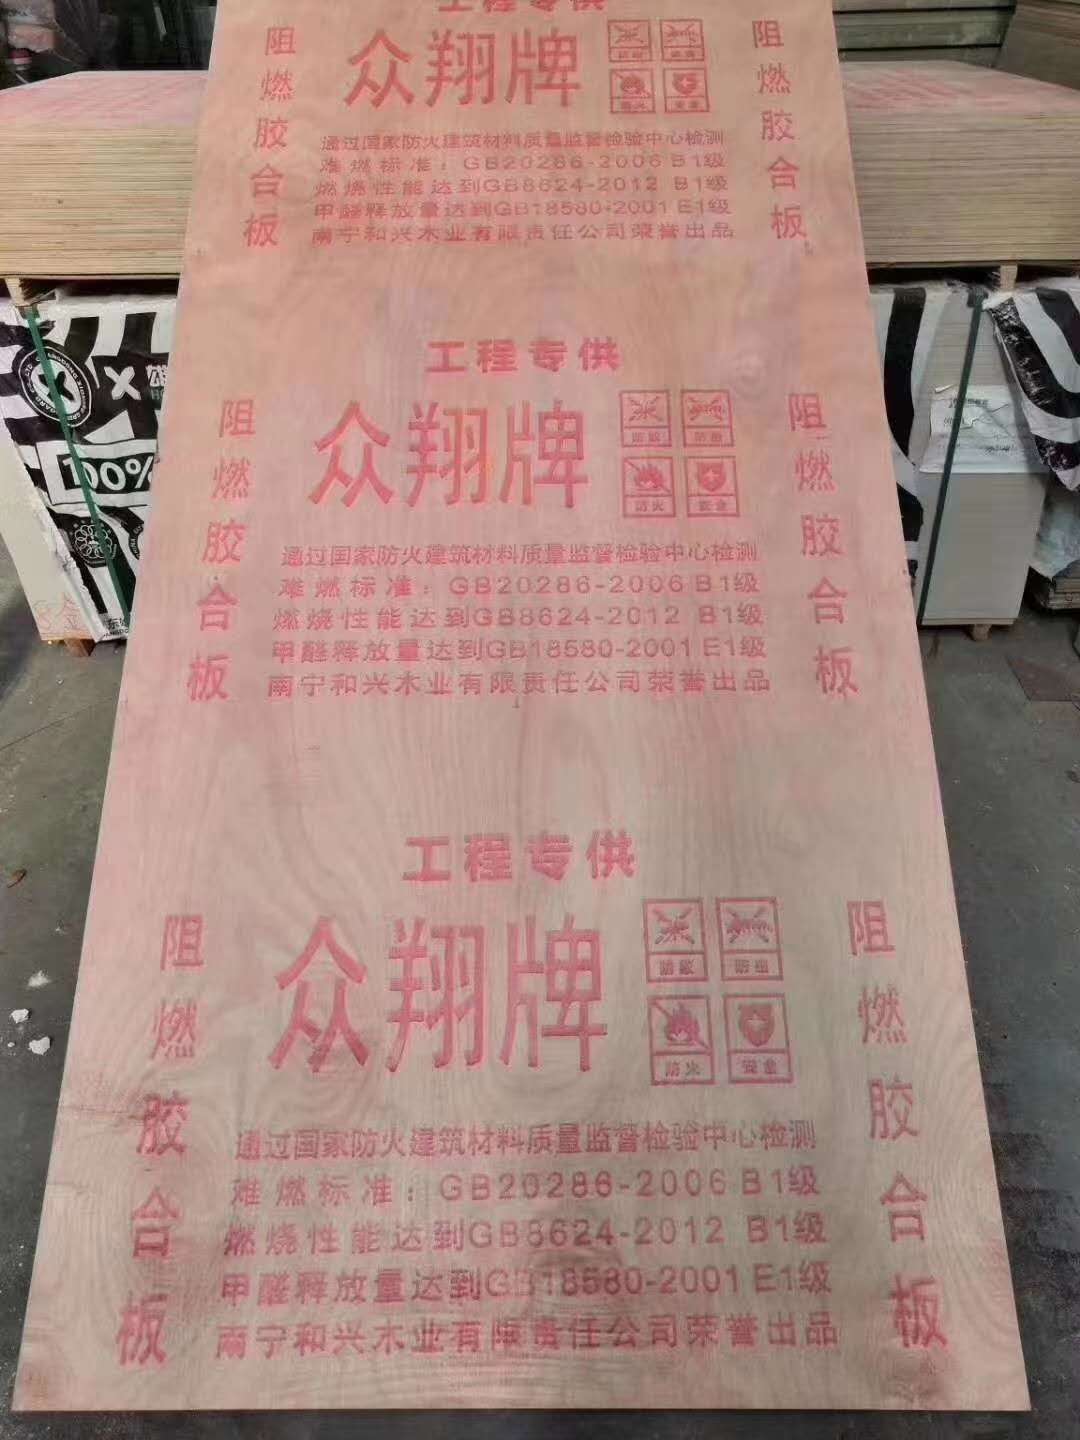 工程专供
众翔牌
阻燃胶合板
阻燃胶合板
防火
安全
通过国家防火建筑材料质量监督检验中心检测
难燃标准：GB20286-2006 B1级
燃烧性能达到GB8624-2012 B1级
甲醛释放量达到GB18580-2001 E1级
南宁和兴木业有限责任公司荣誉出品
100%
工程专供
众翔牌
阻燃胶合板
阻燃胶合板
防腐
防虫
防火
安全
通过国家防火建筑材料质量监督检验中心检测
难燃标准：GB20286-2006 B1级
燃烧性能达到GB8624-2012 B1级
甲醛释放量达到GB18580-2001 E1级
南宁和兴木业有限责任公司荣誉出品
工程专供
众翔牌
阻燃胶合板
阻燃胶合板
防腐
防虫
防火
安全
通过国家防火建筑材料质量监督检验中心检测
难燃标准：GB20286-2006 B1级
燃烧性能达到GB8624-2012 B1级
甲醛释放量达到GB18580-2001 E1级
南宁和兴木业有限责任公司荣誉出品